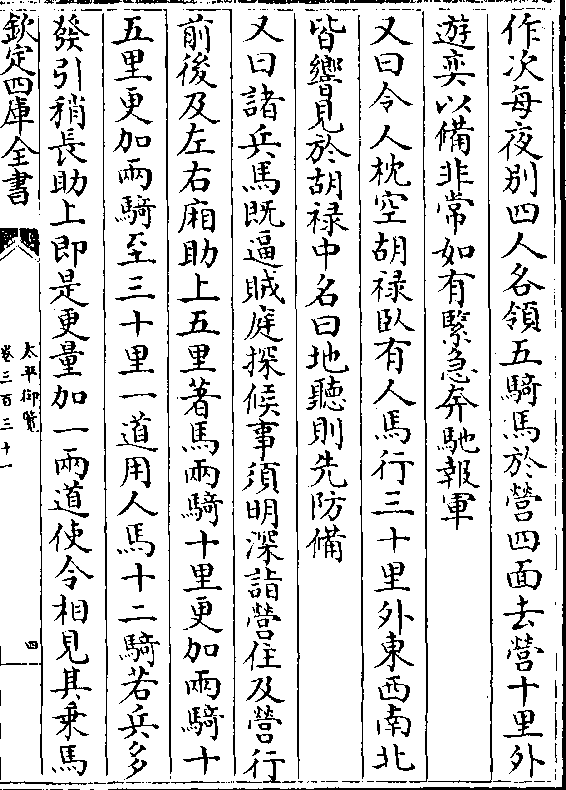 作次每夜别四人各領五騎馬於營四面去營十里外
遊奕以備非常如有緊急奔馳報軍
又曰令人枕空胡禄卧有人馬行三十里外東西南北
皆響見於胡禄中名曰地聽則先防備
又曰諸兵馬既逼賊庭探候事須明深詣營住及營行
前後及左右廂助上五里著馬兩騎十里更加兩騎十
五里更加兩騎至三十里一道用人馬十二騎若兵多
發引稍長助上即是更量加一兩道使令相見其乗馬
欽定四庫全書
太平御覽
卷三百三十一
四